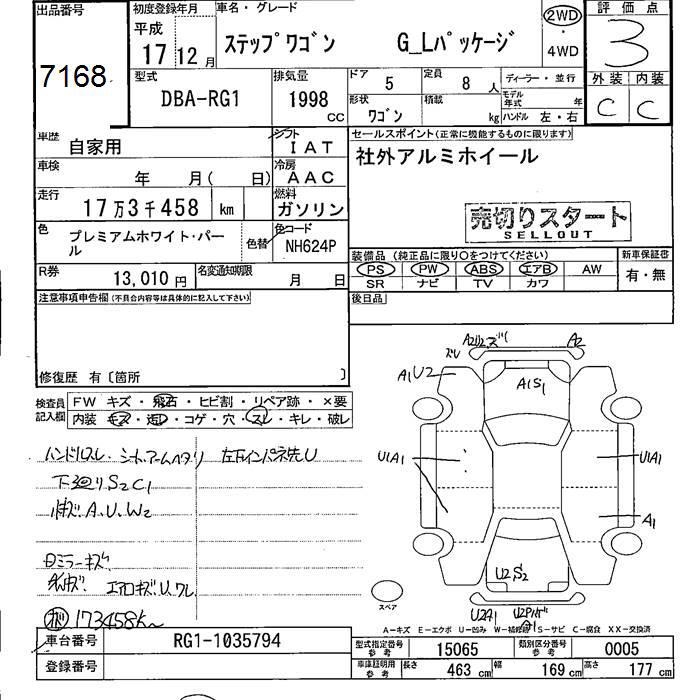 出品番号
7168
初度登録年月
平成
17 12 月
車名・グレード
ステップワゴン G_Lパッケージ
2WD
・
4WD
評価点
3
外装 内装
C C
型式
DBA-RG1
排気量
1998
CC
ドア
5
定員
8 人
ディーラー・並行
形状
ワゴン
積載
kg
モデル年式
年
ハンドル 左・右
車歴
自家用
シフト
IAT
セールスポイント(正常に機能するものに限ります)
社外アルミホイール
車検
年 月( 日)
冷房
AAC
走行
17万3千458 km
燃料
ガソリン
売切りスタート
SELLOUT
色
プレミアムホワイト・パール
色替
色コード
NH624P
装備品(純正品に限り○をつけてください)
PS PW ABS エアB AW
SR ナビ TV カワ
新車保証書
有・無
R券
13,010 円
名変通知期限
月 日
後日品
注意事項申告欄(不具合内容等は具体的に記入して下さい)
修復歴 有〔箇所 〕
検査員記入欄
FW キズ・飛石・ヒビ割・リペア跡・×要
内装 モス・汚レ・コゲ・穴・スレ・キレ・破レ
ハンドルスレ シートアームヘタリ 左下インパネ先U
下廻りS2C1
キズ A.U.W2
ミラーキズ
エアロキズ.U.ワレ
173458k
A2U2.ズリ A2
ズレ
A1U2
A1S1
U1A1
U1A1
A1
U2.S2
U2A1
A1
スペア
A-キズ E-エクボ U-凹み W-補修跡 S-サビ C-腐食 XX-交換済
車台番号
RG1-1035794
登録番号
型式指定番号
参考
15065
類別区分番号
参考
0005
車庫証明用
参考
長さ 463 cm 幅 169 cm 高さ 177 cm